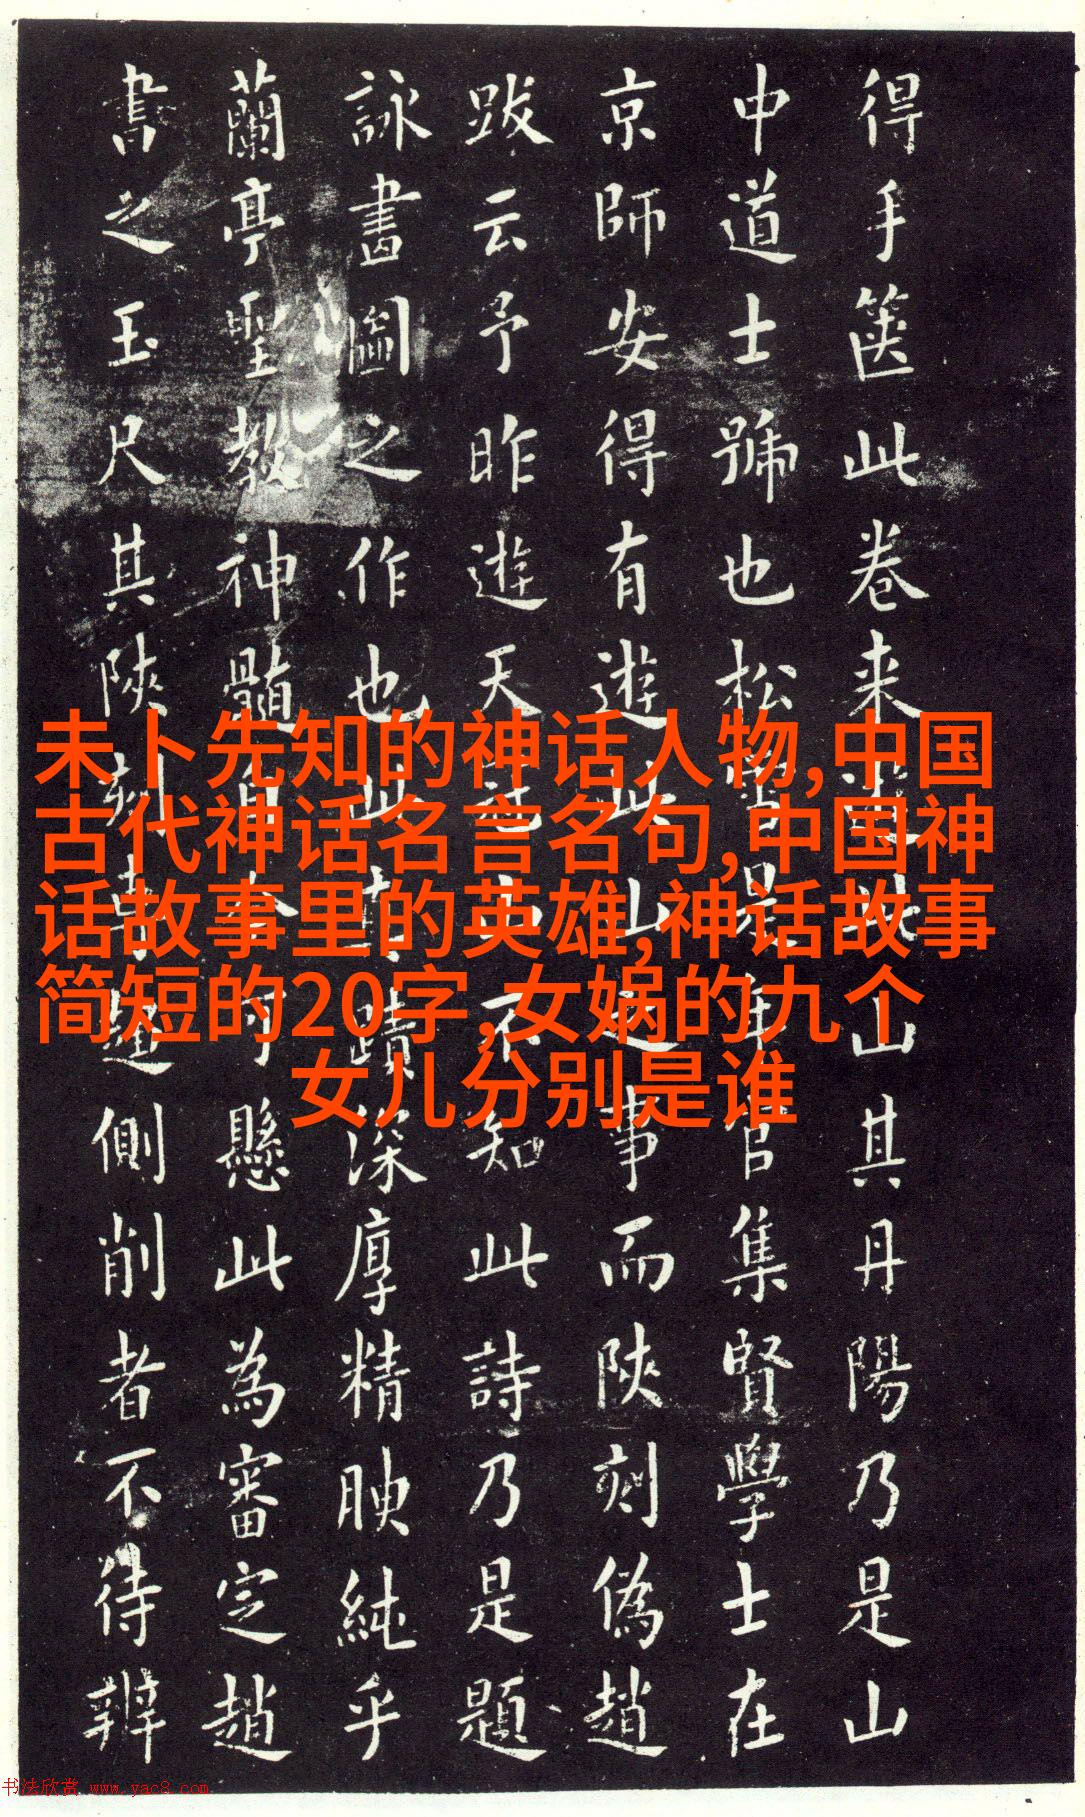 得手箧此卷来
山其丹陽乃是山
中道士號也松雪是年官集賢學士在
京師安得有遊此山之事而陝刻偽趙
跋云予昨遊天
不知此詩乃是題
詠書圖之作也此
蹟深厚精腴純乎
蘭亭聖教神髓
可懸此為審定趙
書之玉尺其陝刻
側削者不待辨
未卜先知的神话人物,中国
古代神话名言名句,中国神
话故事里的英雄,神话故事
简短的20字,女娲的九个
女儿分别是谁
书法欣赏 www.yac8.com